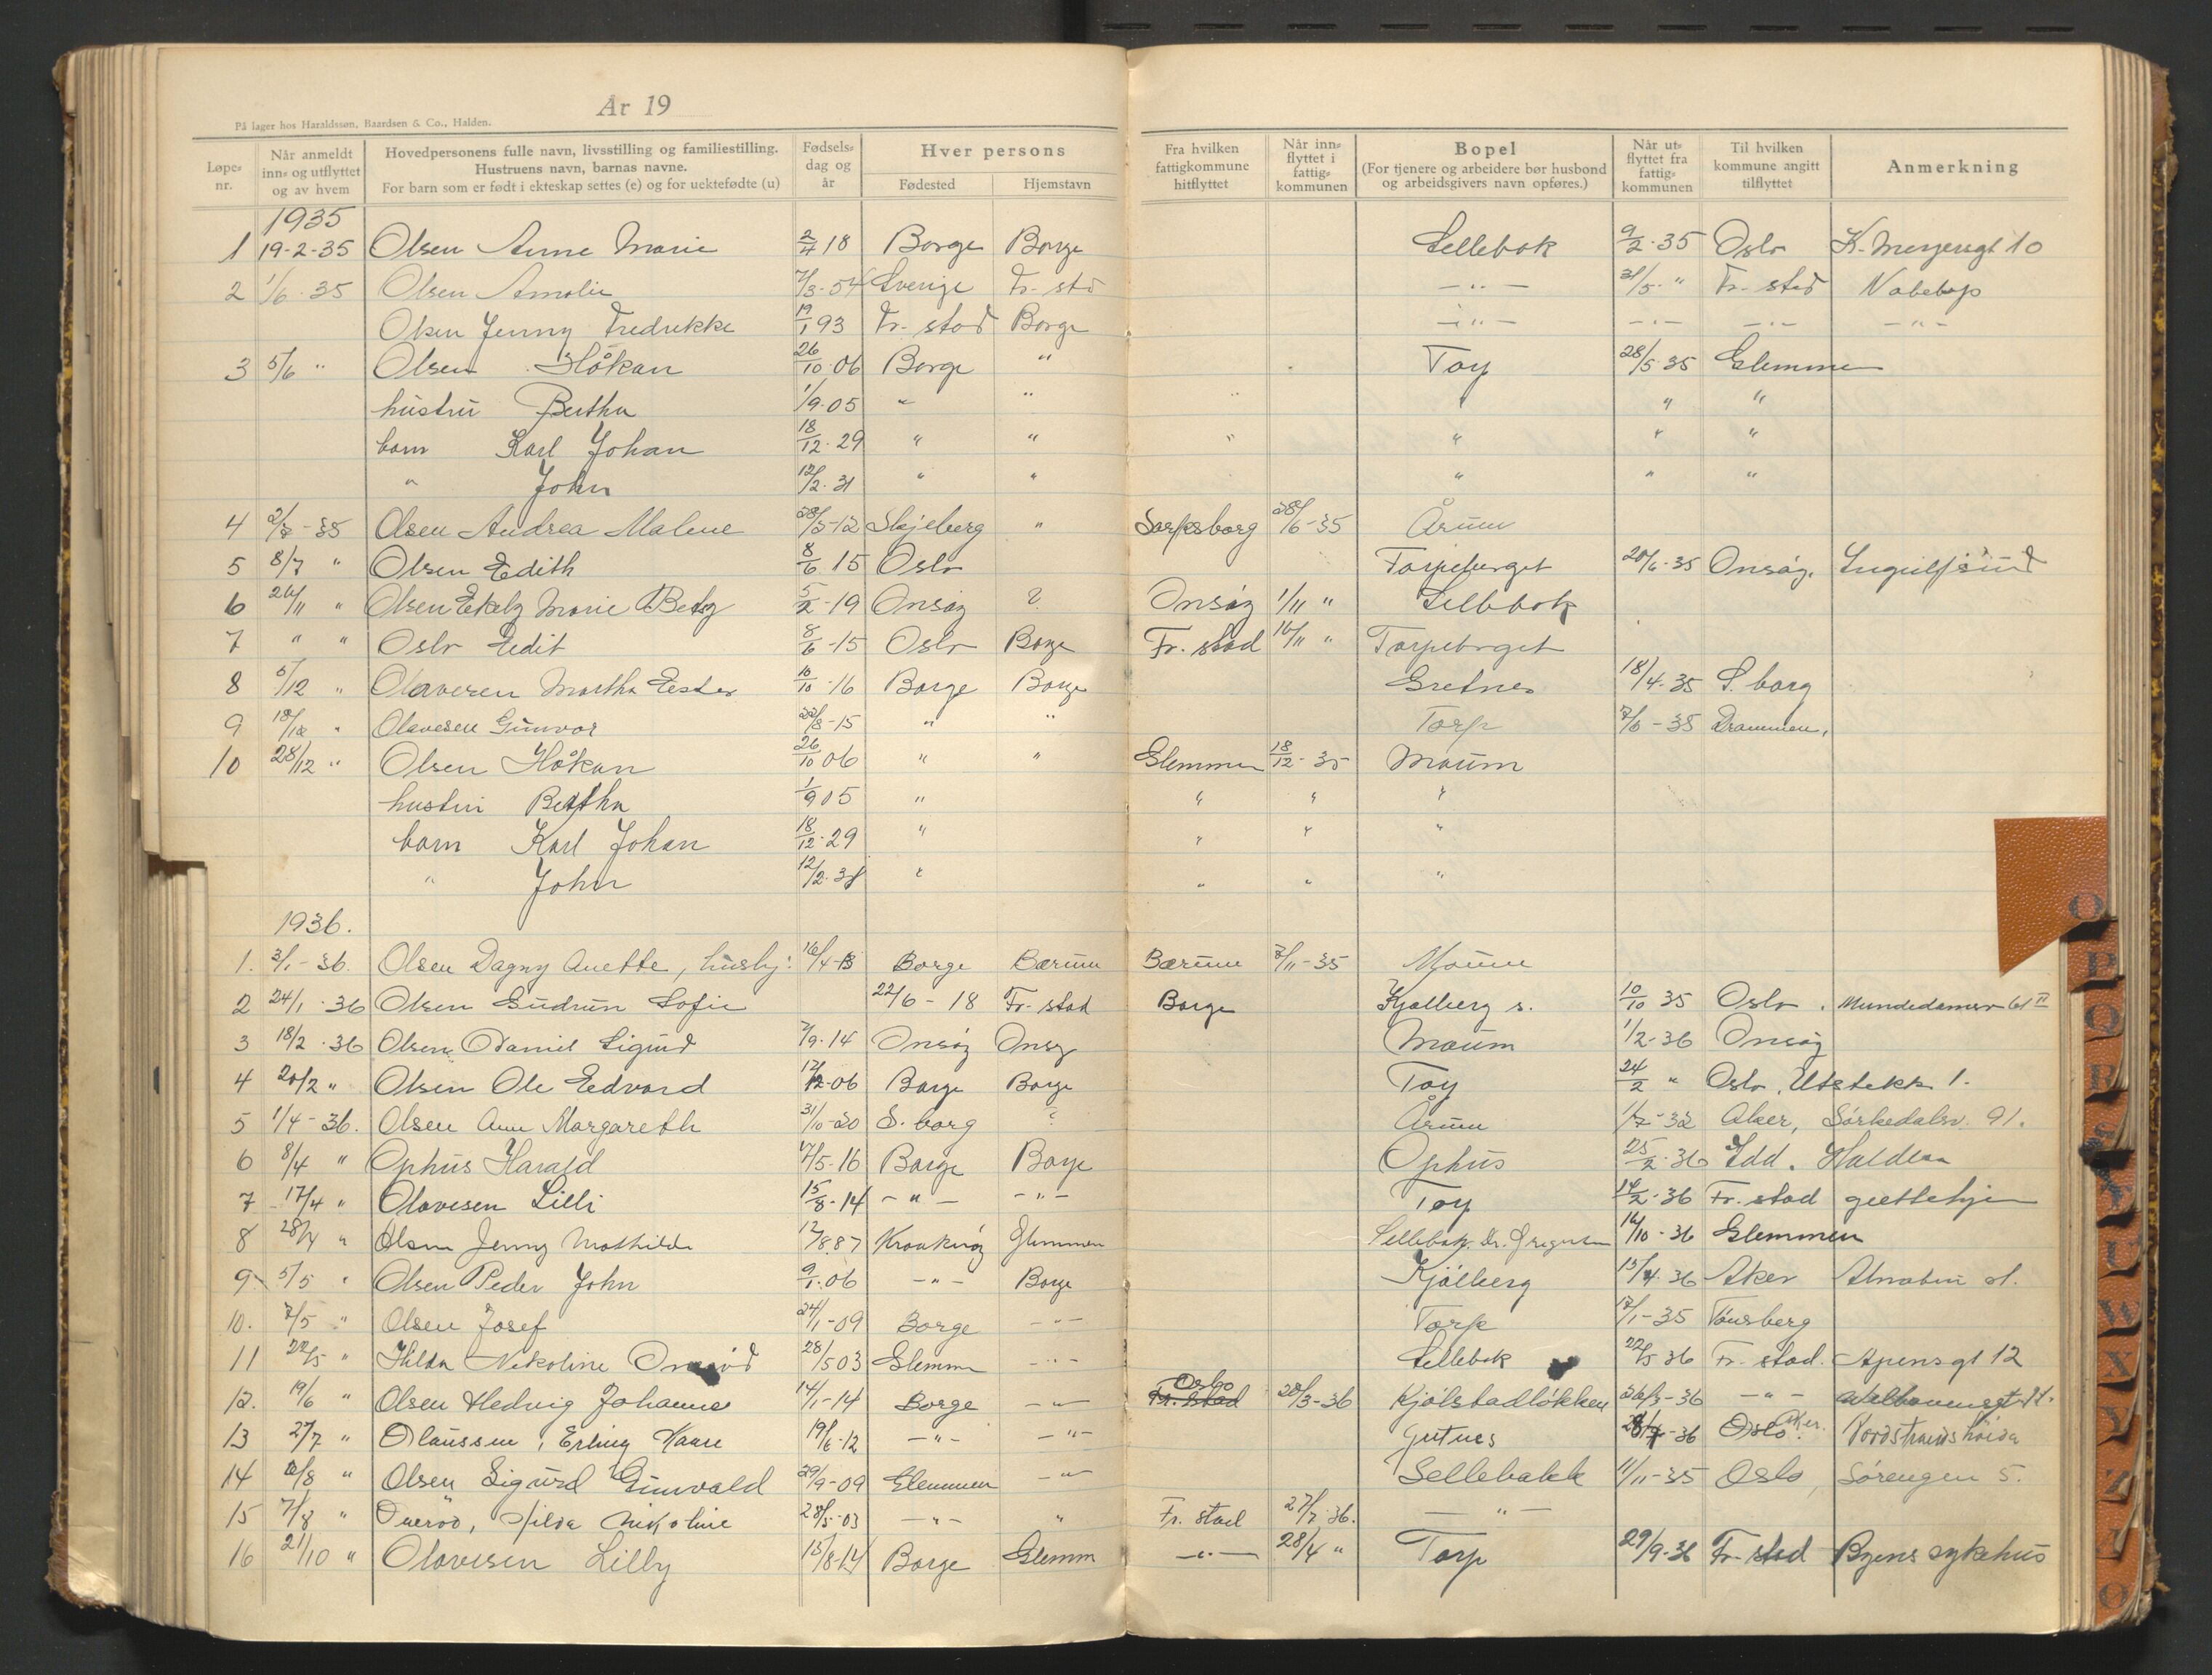 År 19
På lager hos Haraldssøn, Baardsen & Co., Halden.
Løpe-nr. Når anmeldt inn- og utflyttet og av hvem Hovedpersonens fulle navn, livsstilling og familiestilling. Hustruens navn, barnas navne. For barn som er født i ekteskap settes (e) og for uektefødte (u) Fødsels-dag og år Hver persons Fødested Hjemstavn Fra hvilken fattigkommune hitflyttet Når inn-flyttet i fattig-kommunen Bopel (For tjenere og arbeidere bør husbond og arbeidsgivers navn opføres.) Når ut-flyttet fra fattig-kommunen Til hvilken kommune angitt tilflyttet Anmerkning
1935
1 19-2-35 Olsen Anne Marie 2/4 18 Borge Borge Sellebok 9/2-35 Oslo
2 1/6-35 Olsen Amalie 7/3-54 Sverige Fr.stad -"- 31/5-" Fr.stad Nabebop
Olsen Jenny Fredrikke 19/1 93 Fr.stad Borge -"- -"- -"- -"-
3 5/6 " Olsen Håkan 26/10-06 Borge " Torp 28/5-35 Glemmen
hustru Bertha 1/9-05 " " " " " "
barn Karl Johan 18/12-29 " " " " " "
" John 12/2-31 " " " " "
4 2/7-35 Olsen Andrea Malene 28/5-12 Skjeberg " Sarpsborg 28/6-35 Årum
5 8/7 " Olsen Edith 8/6 15 Oslo Torpeberget 20/6-35 Onsøy.
6 26/11 " Olsen Marie Betzy 5/2-19 Onsøy ? Onsøy 1/11 " Sellebok
7 " " Oslo Edit 8/6-15 Oslo Borge Fr.stad 16/11 " Torpeberget
8 5/12 " Olavesen Martha Ester 10/10-16 Borge Borge Gretnes 18/4-35 S.borg
9 18/12 " Olavesen Gunvor 22/8-15 " " Torp 7/6-35 Drammen,
10 28/12 " Olsen Håkan 26/10 06 " " Glemmen 18/12-35 Moum
hustru Bertha 1/9 05 " " " "
barn Karl Johan 18/12-29 " " " "
" John 12/2-31 " " " "
1936.
1. 3/1-36. Olsen Dagny Anette, hushj: 16/4-13 Borge Bærum Bærum 7/11-35 Moum
2 24/1-36 Olsen Gudrun Sofie 22/6-18 Fr.stad Borge Kjølberg s. 10/10 35 Oslo. 61 II
3 18/2-36 Olsen Daniel Sigurd 7/9-14 Onsøy Onsøy Moum 1/2-36 Onsøy
4 20/2 " Olsen Ole Edvard 12/12-06 Borge Borge Torp 24/2 " Oslo, 1.
5 1/4-36. Olsen Ann Margareth 31/10-20 S.borg ? Årum 1/7-32 Aker, Sørkedalsv. 91.
6 8/4 " Ophus Harald 7/5-16 Borge Borge Ophus 25/2-36 Idd. Halden
7 17/4 " Olavesen Lilli 15/8-14 -"- -"- Torp 14/2-36 Fr.stad
8 28/4 " Olsen Jenny Mathilde 12/8.87 Kråkerøy Glemmen Sellebok 16/10-36 Glemmen
9 5/5 " Olsen Peder John 9/1-06 -"- Borge Kjølberg 15/4-36 Aker Alnabru st.
10. 7/5 " Olsen Josef 24/1-09 Borge -"- Torp 17/1-35 Tønsberg
11 22/5 " Hilda Nikoline 28/5 03 Glemm -"- Sellebok 22/5 36 Fr.stad. Apensgt 12
12. 19/6 " Olsen Hedvig Johanne 14/1-14 Borge -"- Fr.stad Oslo 28/3-36 Kjølstadløkken 26/3-36 -"-
13 27/7 " Olaussen, Erling Kaare 19/6-12 -"- -"- 28/7-36 Oslo. Aker. Nordstrandshøida
14 10/8 " Olsen Sigurd Gunvald 29/9-09 Glemmen -"- Sellebakk 11/11-35 Oslo, Sørengen 5.
15 7/8 " Onerød, Hilda Nikoline 28/5-03 -"- " Fr.stad 27/7-36. -"-
16 21/10 " Olavesen Lilly 15/8-14 Borge Glemm -"- 28/4 " Torp 29/9-36 Fr.stad Byens sykehus
O P Q R S T U W X Y Z Æ Ø